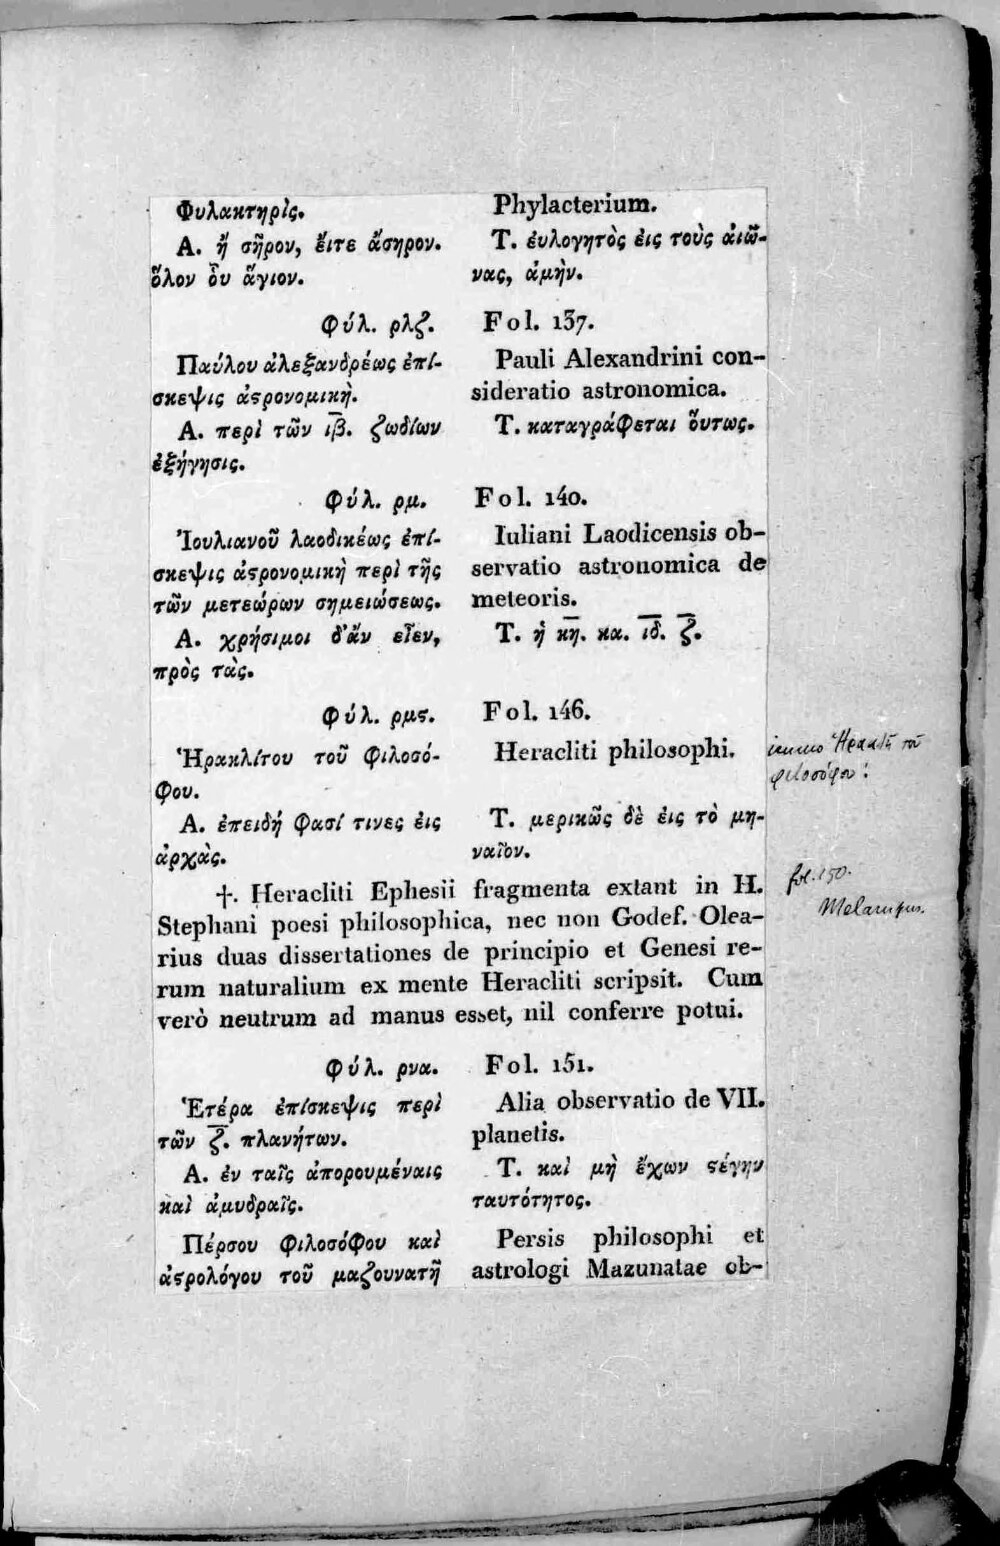 Φυλακτηρὶς. Phylacterium.
Α. ἤ σῆρον, ἔιτε ἄσηρον. Τ. ἐυλογητὸς ἐις τοὺς ἀιῶ-
ὅλον ὂυ ἅγιον. νας, ἀμὴν.
Φύλ. ρλζ. Fol. 137.
Παύλου ἀλεξανδρέως ἐπί- Pauli Alexandrini con-
σκεψις ἀϛρονομικὴ. sideratio astronomica.
Α. περὶ τῶν ιβ. ζωδίων Τ. καταγράφεται ὅυτως.
ἐξήγησις.
Φύλ. ρμ. Fol. 140.
Ἰουλιανοῦ λαοδικέως ἐπί- Iuliani Laodicensis ob-
σκεψις ἀϛρονομικὴ περὶ τῆς servatio astronomica de
τῶν μετεώρων σημειώσεως. meteoris.
Α. χρήσιμοι δ'ἄν εἶεν, Τ. ἡ κη. κα. ιδ. ζ.
πρὸς τὰς.
Φύλ. ρμϛ. Fol. 146.
Ἡρακλίτου τοῦ φιλοσό- Heracliti philosophi.
φου.
Α. ἐπειδή φασί τινες ἐις Τ. μερικῶς δὲ ἐις τὸ μη-
ἀρχὰς. ναῖον.
†. Heracliti Ephesii fragmenta extant in H.
Stephani poesi philosophica, nec non Godef. Olea-
rius duas dissertationes de principio et Genesi re-
rum naturalium ex mente Heracliti scripsit. Cum
verò neutrum ad manus esset, nil conferre potui.
Φύλ. ρνα. Fol. 151.
Ἑτέρα ἐπίσκεψις περὶ Alia observatio de VII.
τῶν ζ. πλανήτων. planetis.
Α. ἐν ταῖς ἀπορουμέναις Τ. καὶ μὴ ἔχων ϛέγην
καὶ ἀμυδραῖς. ταυτότητος.
Πέρσου φιλοσόφου καὶ Persis philosophi et
ἀϛρολόγου τοῦ μαζουνατῆ astrologi Mazunatae ob-
immo τοῦ
φιλοσόφου!
fol. 150.
Melampus.